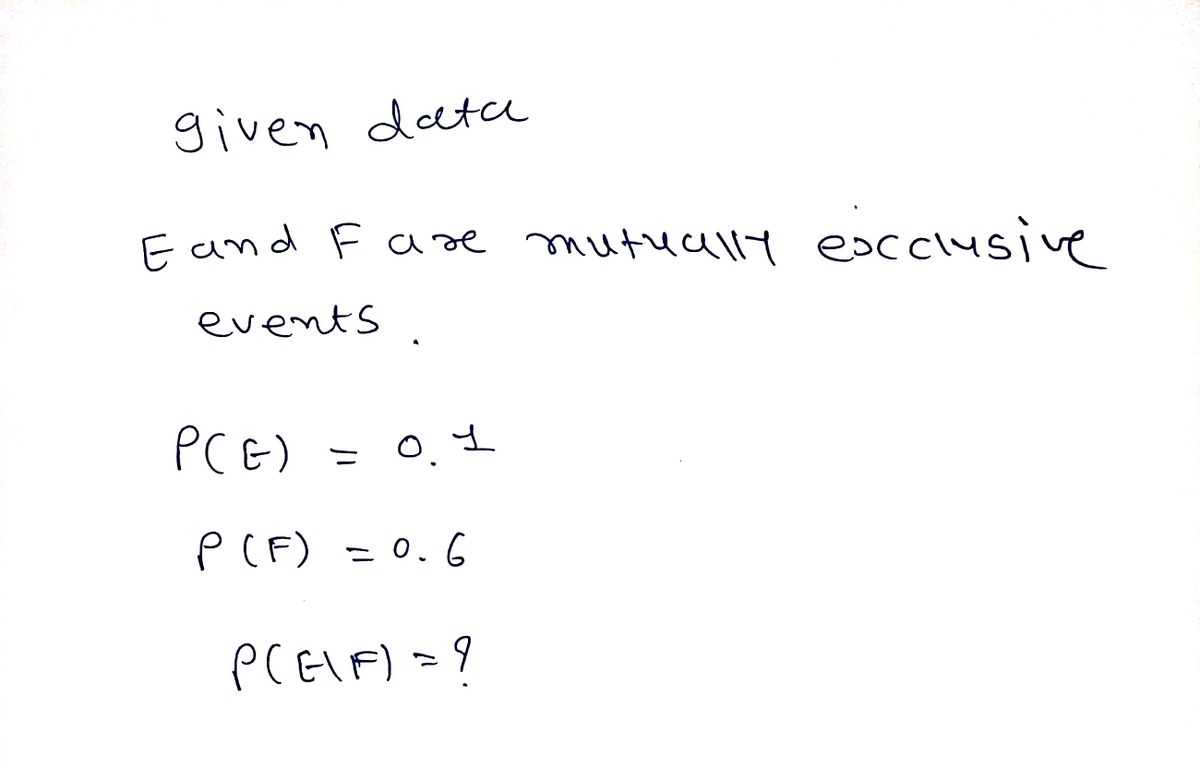 given data
E and F are mutually exclusive
events.
P(E) = 0.1
P(F) = 0.6
P(E\F) = ?